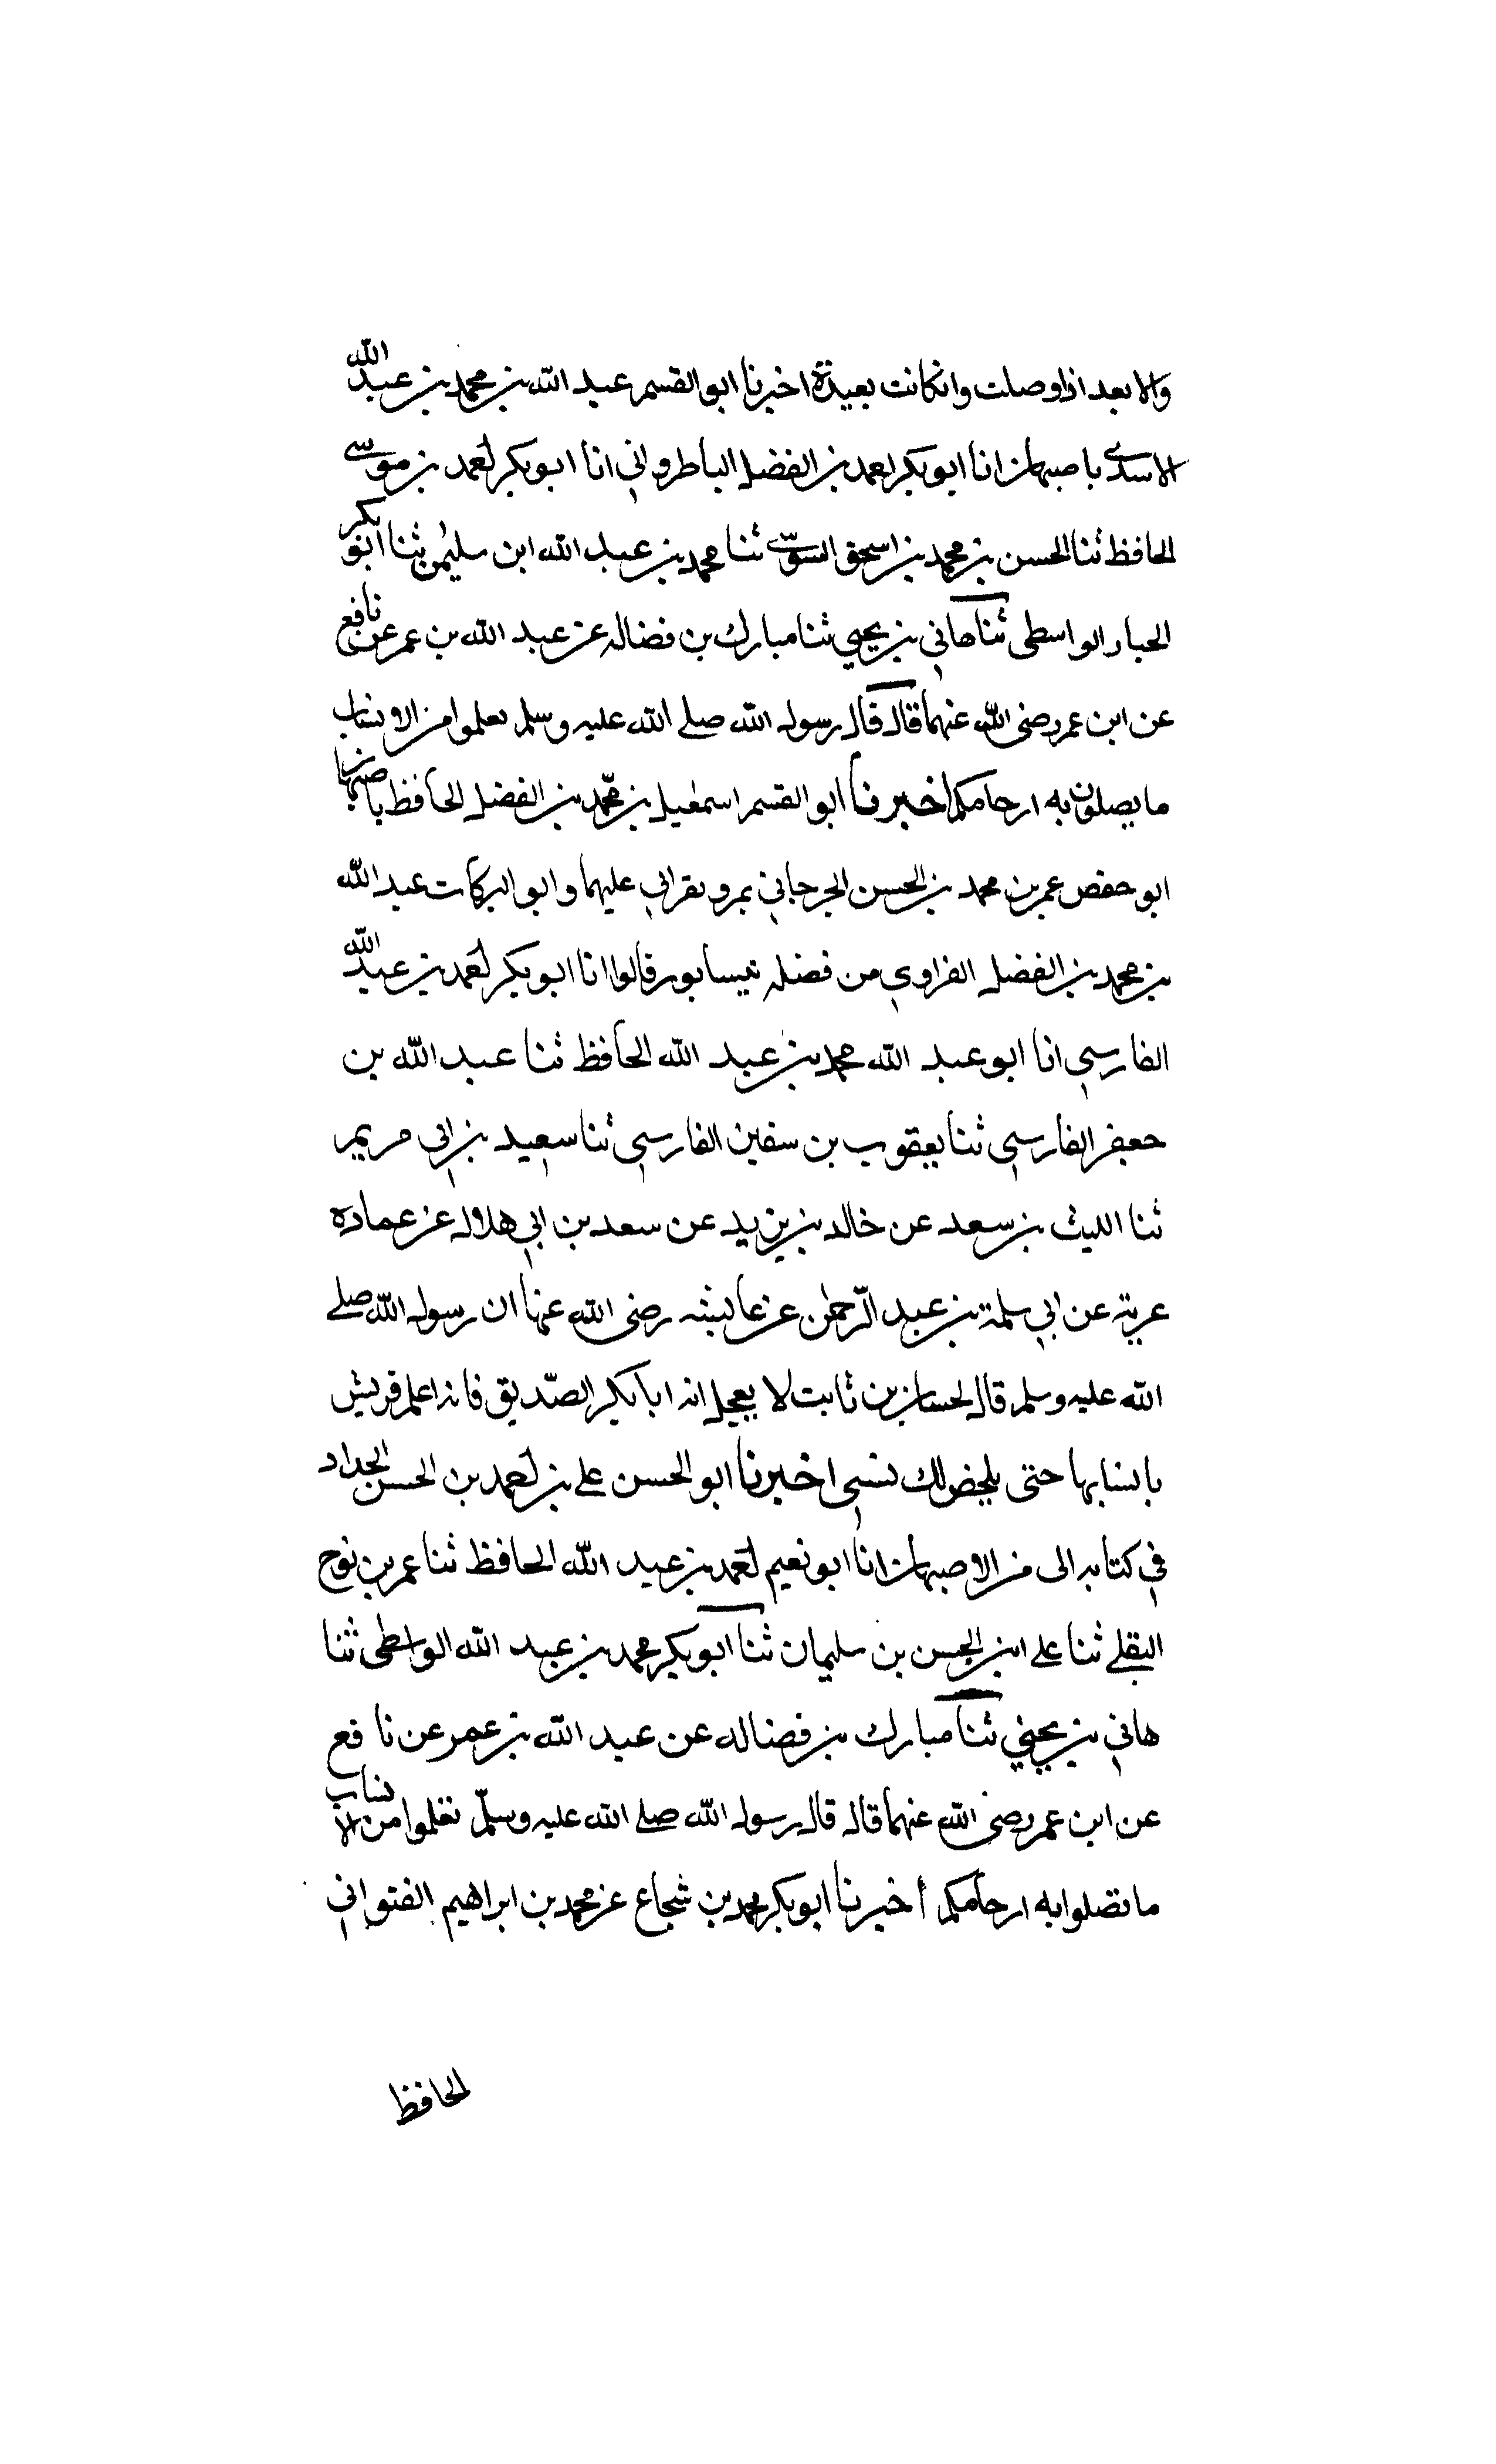 ولا بعد اذا وصلت وانكانت بعيدة اخبرنا ابو القسم عبد الله بن محمد بن عبد الله
الاسدي باصبهان انا ابو بكر احمد بن الفضل الباطرواني انا ابو بكر احمد بن موسى
الحافظ ثنا الحسن بن محمد بن اسحق السوسي ثنا محمد بن عبد الله ابن سليمن ثنا ابو بكر
الجبار الواسطى ثنا هاني بن يحيي ثنا مبارك بن فضاله عن عبد الله بن عمر عن نافع
عن ابن عمر رضى الله عنهما قال قال رسول الله صلى الله عليه وسلم تعلموا من الانساب
ما يصلون به ارحامكم اخبرنا ابو القسم اسمعيل بن محمد بن الفضل الحافظ باصبهان
ابو حفص عمر بن محمد بن الحسن الجرجاني بمرو بقراتي عليهما وابو البركات عبد الله
بن محمد بن الفضل الفراوي من فضله نيسابور قالوا انا ابو بكر احمد بن عبد الله
الفارسي انا ابو عبد الله محمد بن عبد الله الحافظ ثنا عبد الله بن
جعفر الفارسي ثنا يعقوب بن سفين الفارسي ثنا سعيد بن ابي مريم
ثنا الليث بن سعد عن خالد بن يزيد عن سعد بن ابي هلال عن عماده
عرية عن ابي سلمة بن عبد الرحمن عن عايشه رضى الله عنها ان رسول الله صلى
الله عليه وسلم قال لحسان بن ثابت لا يعجل انه ابا بكر الصديق فانه اعلم قريش
بانسابها حتى يلخص لك نسبي اخبرنا ابو الحسن على بن احمد بن الحسن الحداد
في كتابه الى من الاصبهان انا ابو نعيم احمد بن عبد الله الحافظ ثنا عمر بن نوح
البقلي ثنا على ابن الحسن بن سليمان ثنا ابو بكر محمد بن عبيد الله الواسطى ثنا
هاني بن يحيي ثنا مبارك بن فضاله عن عبيد الله بن عمر عن نافع
عن ابن عمر رضى الله عنهما قال قال رسول الله صلى الله عليه وسلم تعلموا من الانساب
ما تصلوا به ارحامكم أخبرنا ابو بكر محمد بن شجاع عن محمد بن ابراهيم الفتواني
الحافظ